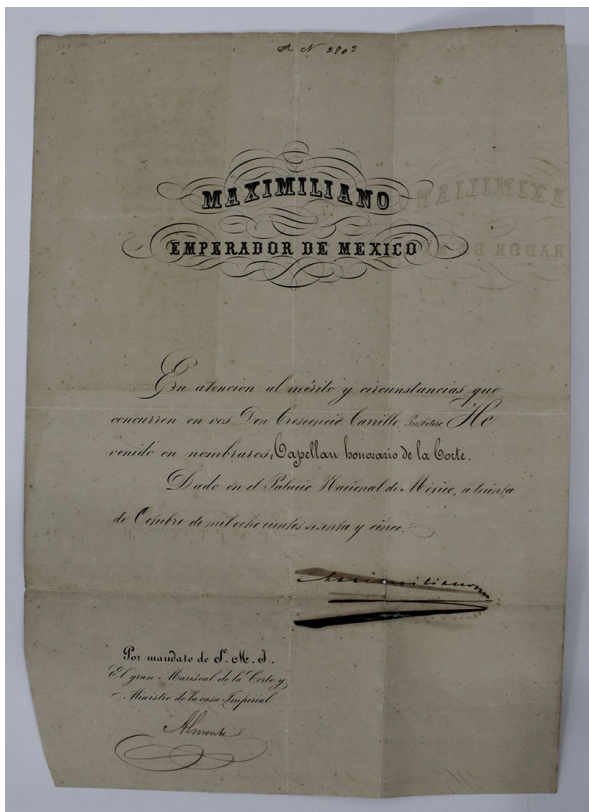 MAXIMILIANO
EMPERADOR DE MEXICO
En atencion al mérito y circunstancias que
concurren en vos Don Crescencio Carrillo, Presbitero He
venido en nombraros, Capellan honorario de la Corte.
Dado en el Palacio Nacional de México, á treinta
de Octubre de mil ocho cientos sesenta y cinco.
Maximiliano
Por mandato de S. M. I.
El gran Mariscal de la Corte y
Ministro de la casa Imperial
Almonte